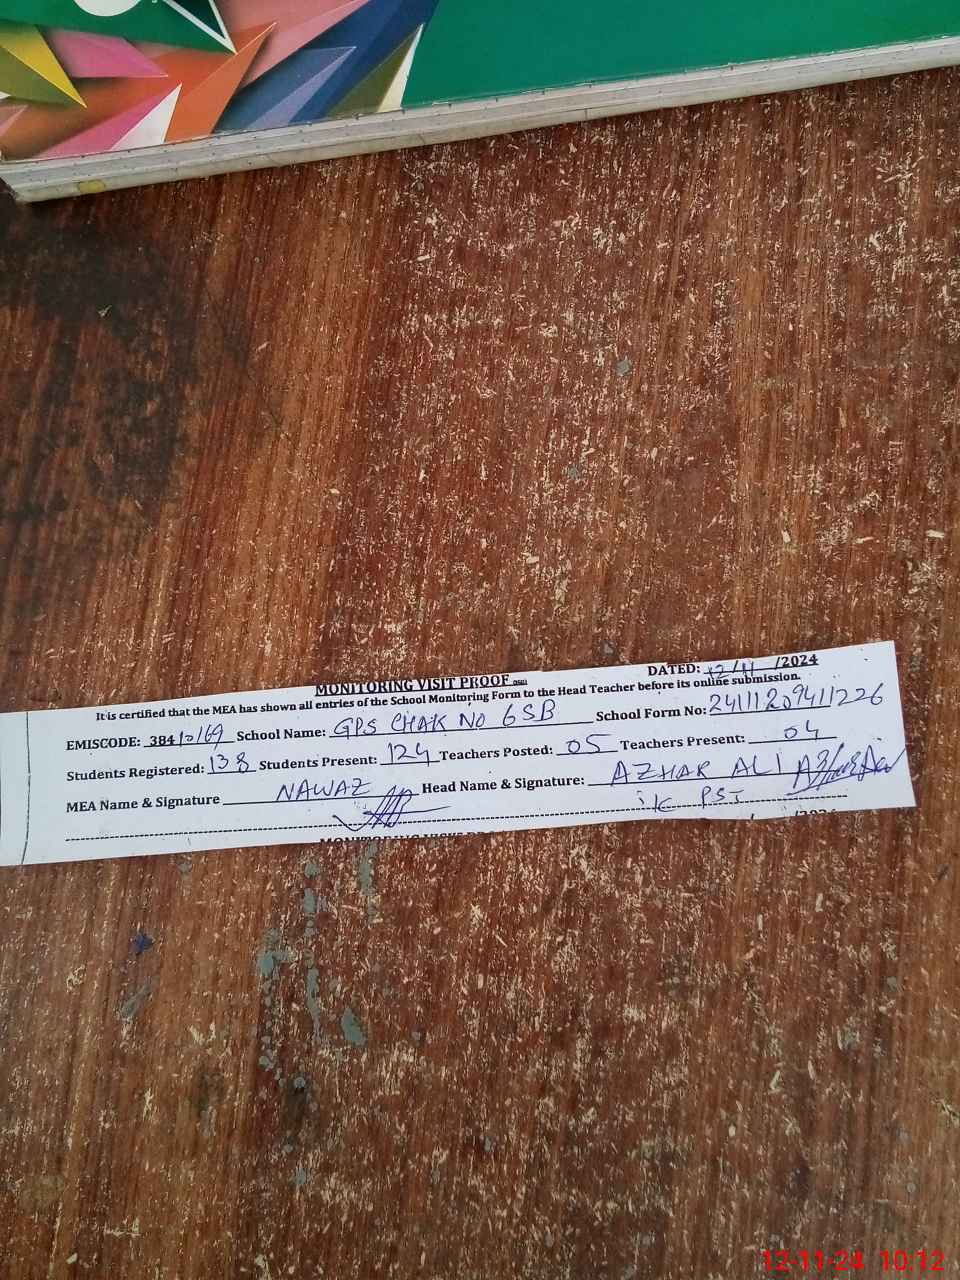 MONITORING VISIT PROOF
DATED: 12/11 /2024
It is certified that the MEA has shown all entries of the School Monitoring Form to the Head Teacher before its online submission.
EMISCODE: 38410169 School Name: GPS CHAK No 6SB School Form No: 24111209411226
Students Registered: 138 Students Present: 124 Teachers Posted: 05 Teachers Present: 04
MEA Name & Signature NAWAZ Head Name & Signature: AZHAR ALI
PST
12-11-24 10:12